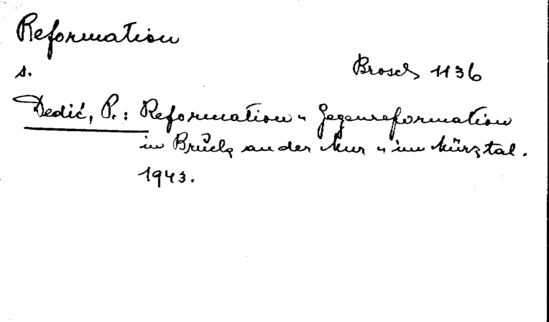 Reformation
s.
Brosch 1136
Dedić, P.: Reformation u Gegenreformation
in Bruck an der Mur u im Mürztal.
1943.